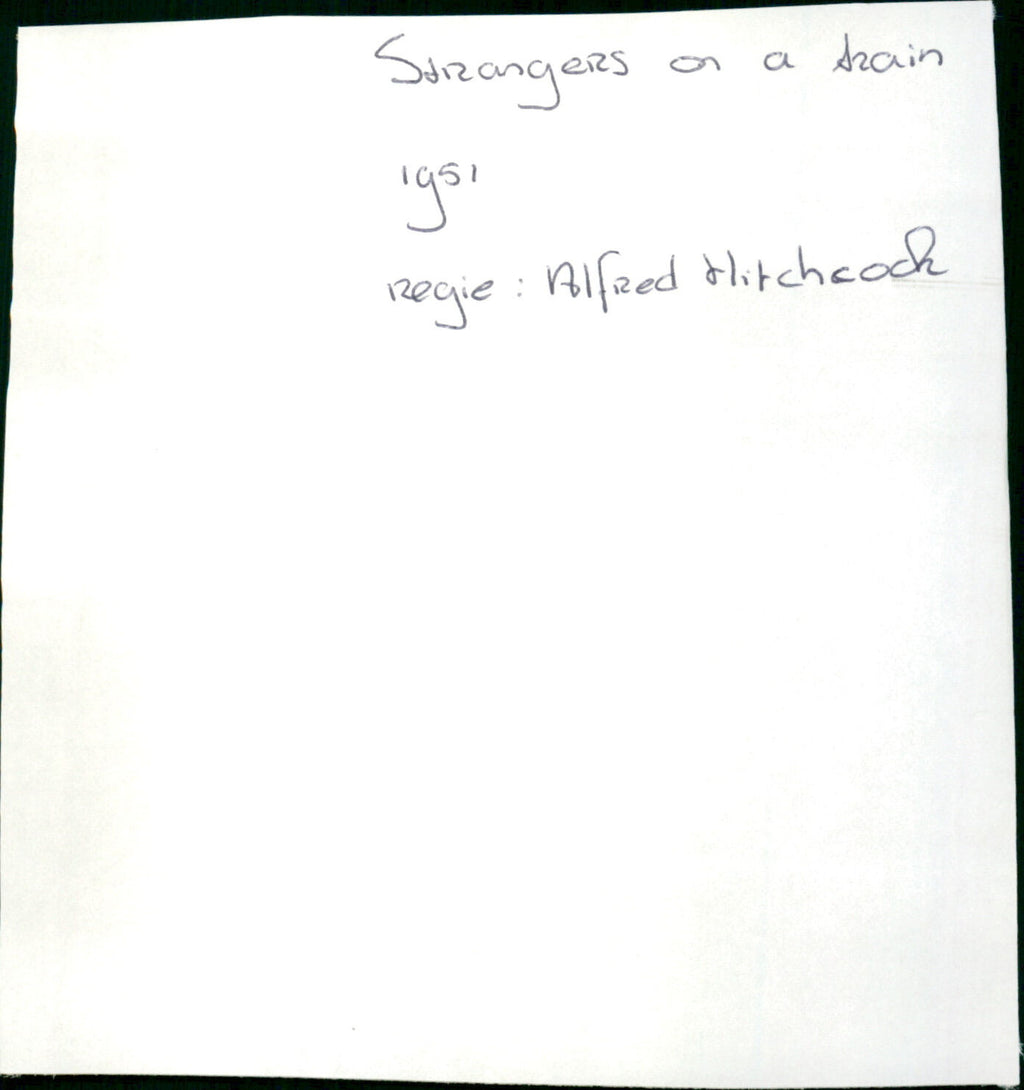 Strangers on a train
1951
regie : Alfred Hitchcock